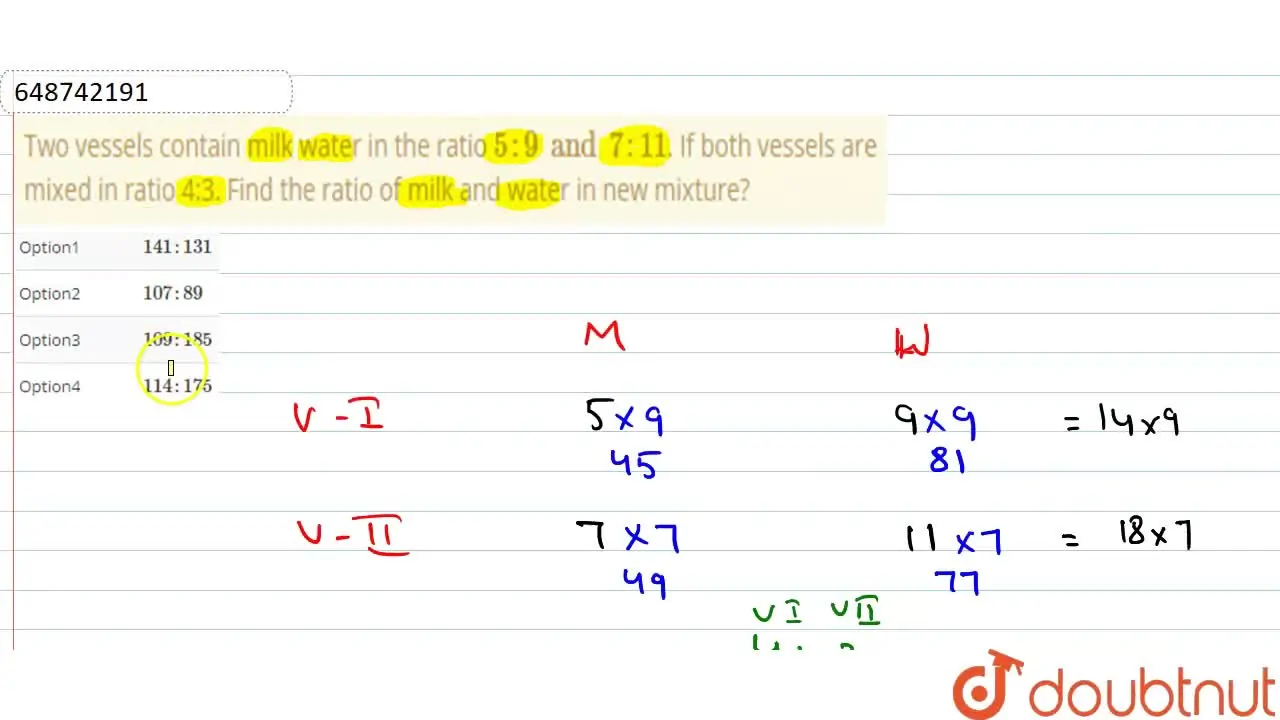 648742191
Two vessels contain milk water in the ratio 5 : 9 and 7 : 11. If both vessels are
mixed in ratio 4:3. Find the ratio of milk and water in new mixture?
Option1 141 : 131
Option2 107 : 89
Option3 109 : 185
Option4 114 : 175
M W
V - I 5 x 9 9 x 9 = 14 x 9
45 81
V - II 7 x 7 11 x 7 = 18 x 7
49 77
V I V II
doubtnut